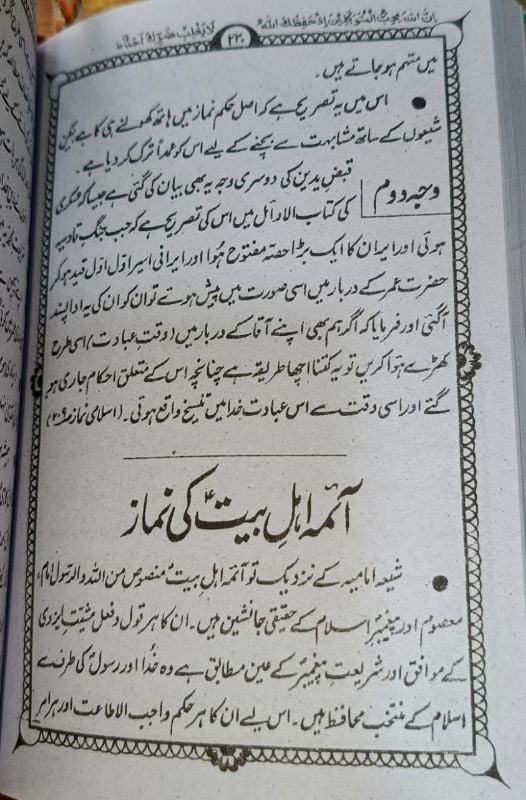 اِنَّ اللہَ یُحِبُّ الْمُتَوَکِّلِیْنَ اِنْ حَفِظَكَ اللہُ
۲۲۰
لَا یَغْلِبُ ضَرُّكَ اَحَدٌ
میں متہم ہو جاتے ہیں۔
● اس میں یہ تصریح ہے کہ اصل حکم نماز میں ہاتھ کھولنے ہی کا ہے لیکن
شیعوں کے ساتھ مشابہت سے بچنے کے لیے اس کو عمداً ترک کر دیا ہے۔
وجہ دوم
قبض یدین کی دوسری وجہ یہ بھی بیان کی گئی ہے جیسا کہ عسکری
کی کتاب الاوائل میں اس کی تصریح ہے کہ جب جنگ قادسیہ
ہوئی اور ایران کا ایک بڑا حصہ مفتوح ہُوا اور ایرانی اسیر اوّل اوّل قید ہو کر
حضرت عمر کے دربار میں اسی صورت میں پیش ہوئے تو ان کو ان کی یہ ادا پسند
آ گئی اور فرمایا کہ اگر ہم بھی اپنے آقا کے دربار میں (وقتِ عبادت) اسی طرح
کھڑے ہوا کریں تو یہ کتنا اچھا طریقہ ہے چنانچہ اس کے متعلق احکام جاری ہو
گئے اور اسی وقت سے اس عبادت خدا میں تنسیخ واقع ہوئی۔ (اسلامی نماز صفحہ ۲۰۹)
آئمہ اہلِ بیتؑ کی نماز
● شیعہ امامیہ کے نزدیک تو آئمہ اہلِ بیتؑ منصوص من اللہ والرسول امام،
معصوم اور پیغمبرِ اسلام کے حقیقی جانشین ہیں۔ ان کا ہر قول و فعل مشیّتِ ایزدی
کے موافق اور شریعت پیغمبرؐ کے عین مطابق ہے وہ خُدا اور رسولؐ کی طرف سے
اسلام کے منتخب محافظ ہیں۔ اس لیے ان کا ہر حکم واجب الاطاعت اور ہر امر